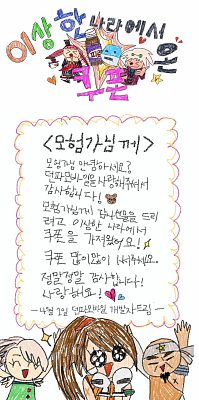 이상한 나라에서 온
쿠폰
<모험가님께>
모험가님 안녕하세요?
던파모바일을 사랑해주셔서
감사합니다!
모험가님께 감사선물을 드리
려고 이상한 나라에서
쿠폰을 가져왔어요!
쿠폰 많이많이 써주세요.
정말정말 감사합니다!
사랑해요!
- 4월 1일 던파모바일 개발자드림 -